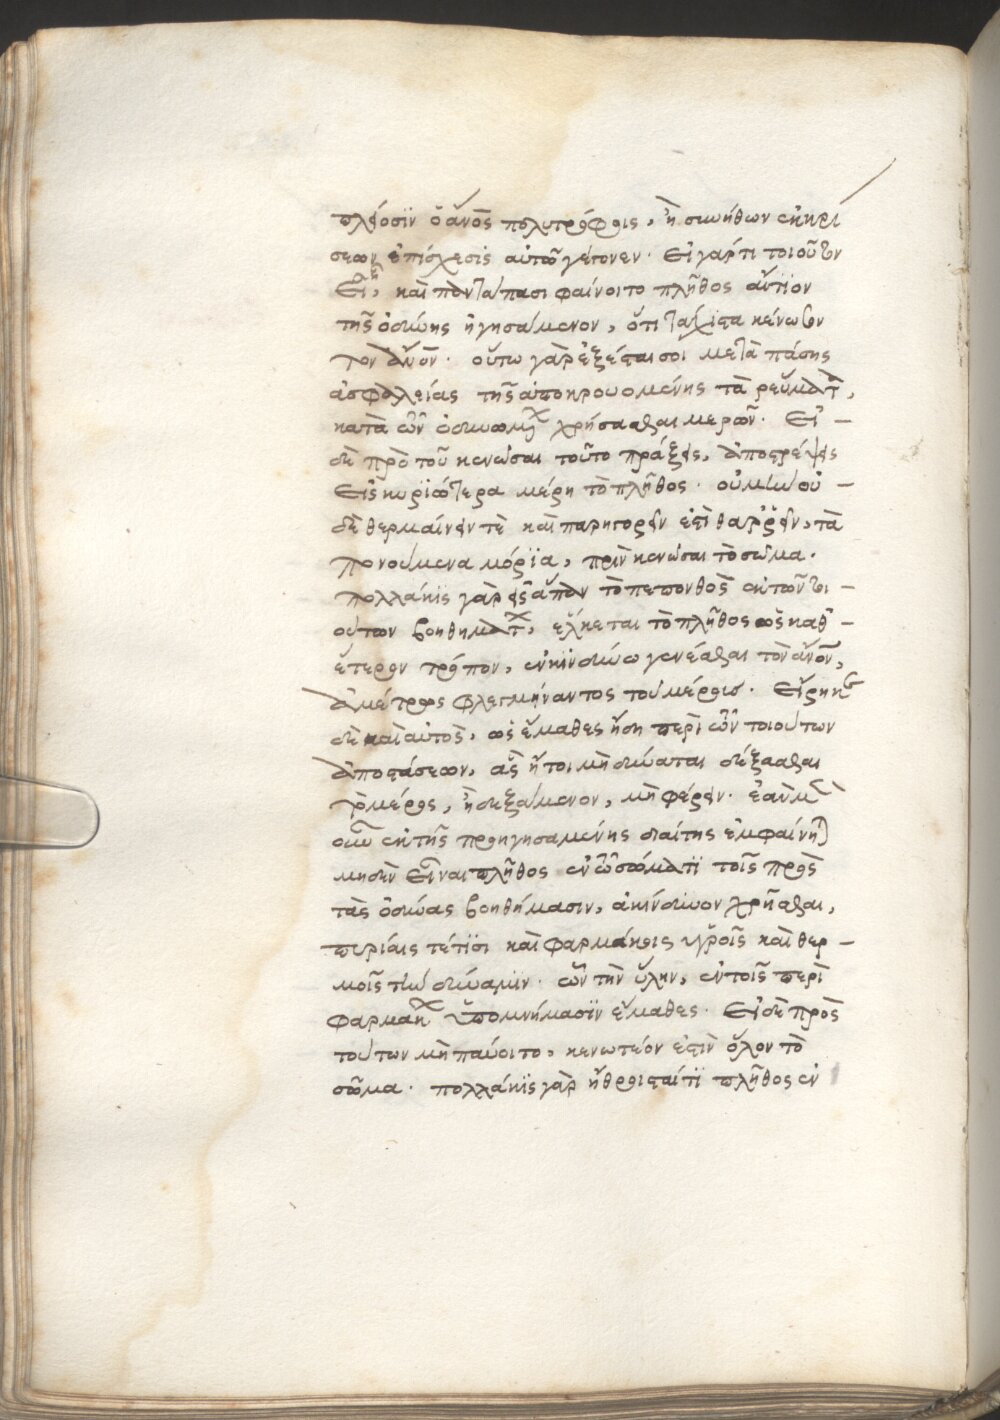 πλέοσϊν ὁ ἄνος πολυτρόφοις, ἢ συνήθων ἐκκρί
σεων ἐπίσχεσις αὐτῶ γέγονεν. Εἰ γάρ τι τοιοῦτον
εἴη, καὶ παντάπασι φαίνοιτο πλῆθος αἴτϊον
τῆς ὀδύνης ἡγησάμενον, ὅτι τάχϊστα κένωσον
τὸν ἄνον. οὕτω γὰρ ἐξέσται σοι μετὰ πάσης
ἀσφαλείας τῆς ἀποκρουομένης τὰ ρεύματ,
κατὰ τῶν ὀδυνωμέν χρήσασθαι μερῶν. Εἰ –
δὲ πρὸ τοῦ κενῶσαι τοῦτο πράξεις, ἀποστρέψεις
εἰς κυρϊώτερα μέρη τὸ πλῆθος. οὐ μὴν οὐ –
δὲ θερμαίνειν τὲ καὶ παρηγορεῖν ἐπὶ θαρρεῖν, τὰ
πονούμενα μόρϊα, πρὶν κενῶσαι τὸ σῶμα.
πολλάκϊς γὰρ εἰς ἅπαν τὸ πεπονθὸς ἐκ τῶν τοι –
ούτων βοηθημάτ, ἕλκεται τὸ πλῆθος ὡς καθ –
ἕτερον τρόπον, ἐν κϊνδύνω γενέσθαι τὸν ἄνον,
ἀμέτρως φλεγμήναντος τοῦ μέρους. Εὕρηκ
δὲ καὶ αὐτὸς, ὡς ἔμαθες ἤδη περὶ τῶν τοιούτων
ἀποστάσεων, ἃς ἤτοι μὴ δύναται δέξασθαι
τὸ μέρος, ἢ δεξάμενον, μὴ φέρειν. ἐὰν μέν
οὖν ἐκ τῆς προηγησαμένης διαίτης ἐμφαίνητ
μηδὲν εἶναι πλῆθος ἐν τῶ σώματϊ τοῖς πρὸς
τὰς ὀδύνας βοηθήμασιν, ἀκίνδυνον χρῆσθαι,
πυρίαις τέ τϊσι καὶ φαρμάκοις ὑγροῖς καὶ θερ –
μοῖς τὴν δύναμϊν. ὧν τὴν ὕλην, ἐν τοῖς περὶ
φαρμάκ ὑπομνήμασϊν ἔμαθες. Εἰ δὲ πρὸς
τούτων μὴ παύοιτο, κενωτέον ἐστὶν ὅλον τὸ
σῶμα. πολλάκϊς γὰρ ἤθροισταί τϊ πλῆθος ἐν